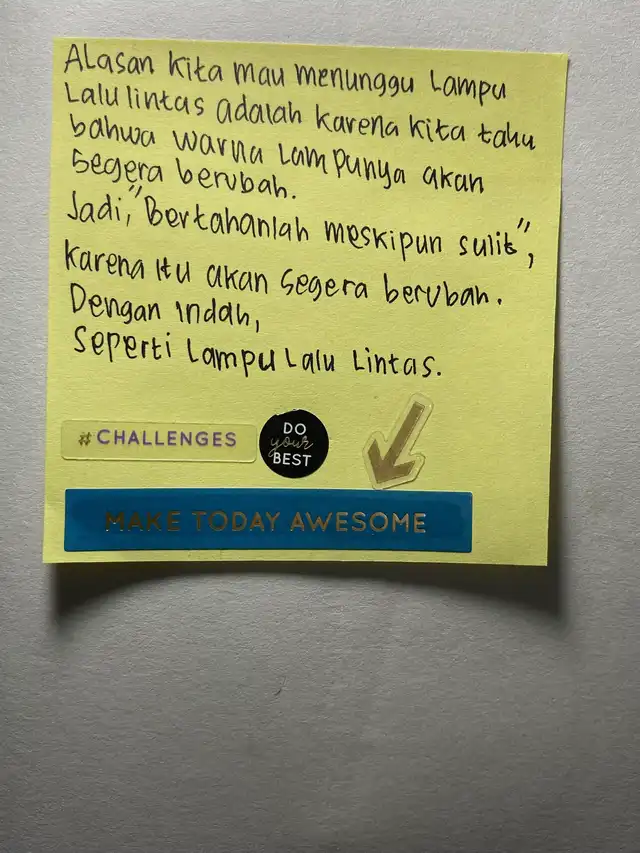 Alasan kita mau menunggu Lampu
Lalu lintas adalah karena kita tahu
bahwa warna Lampunya akan
Segera berubah.
Jadi, "Bertahanlah meskipun sulit",
karena itu akan Segera berubah.
Dengan indah,
Seperti Lampu Lalu Lintas.
#CHALLENGES
DO
your
BEST
MAKE TODAY AWESOME